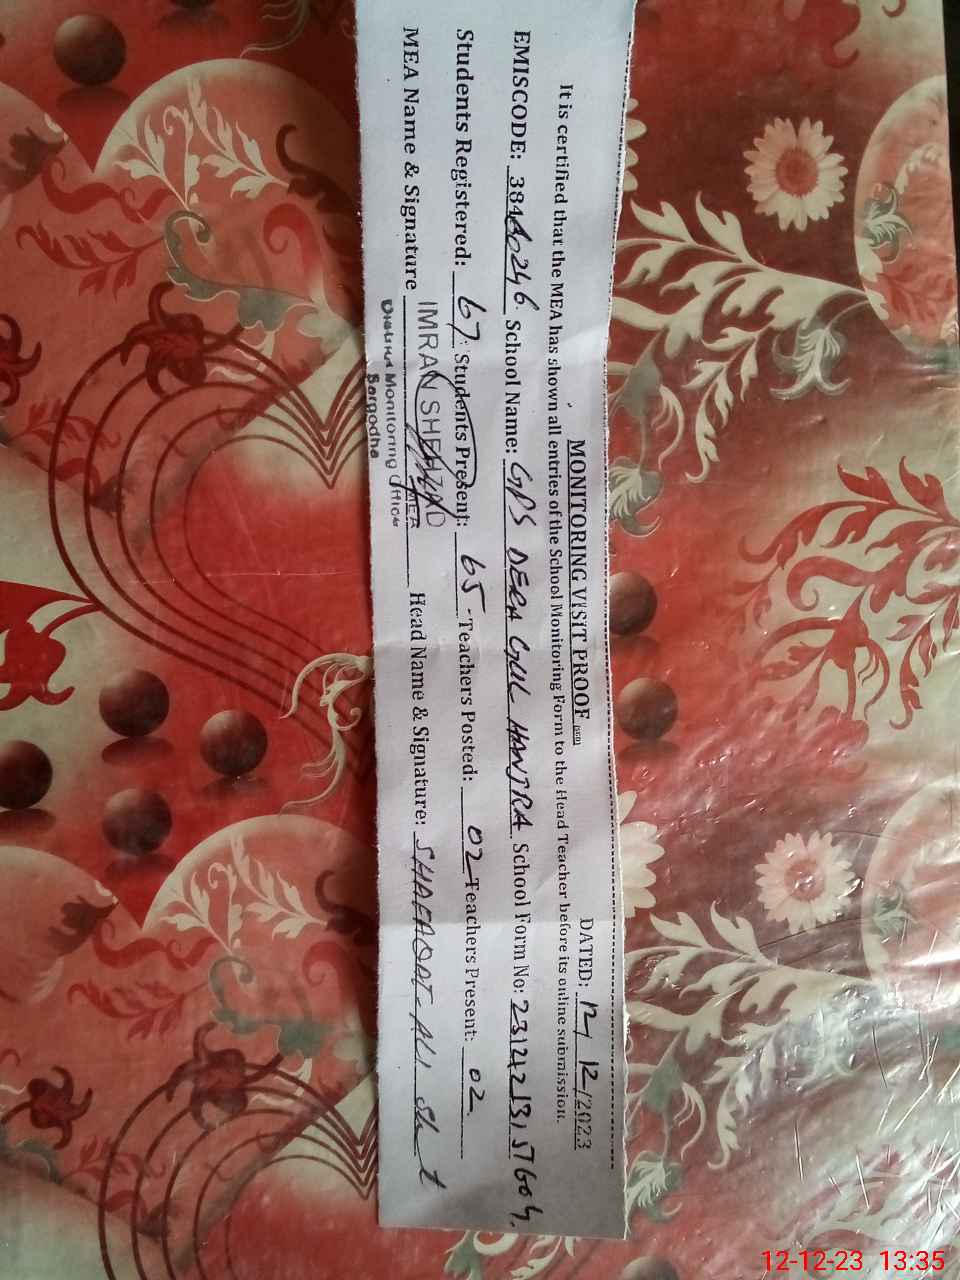 MONITORING VISIT PROOF
DATED: 12/ 12/2023
It is certified that the MEA has shown all entries of the School Monitoring Form to the Head Teacher before its online submission.
EMISCODE: School Name: GPS DERA GUL HANJRA School Form No:
Students Registered: 67 Students Present: 65 Teachers Posted: 02 Teachers Present: 02
MEA Name & Signature IMRAN SHEHZAD MEA Head Name & Signature: SHAFAQAT ALI
District Monitoring Officer
Sargodha
12-12-23 13:35